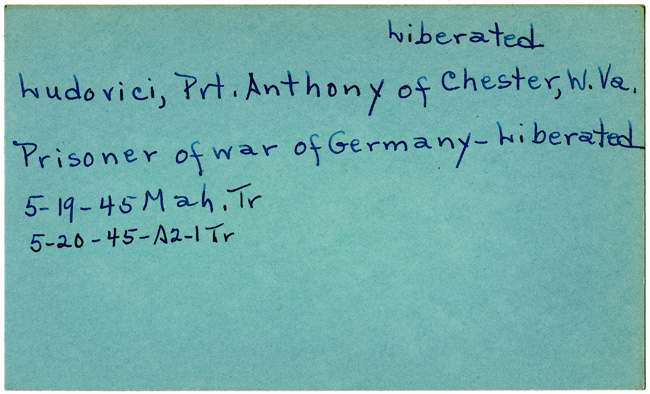 Liberated
Ludovici, Prt. Anthony of Chester, W. Va.
Prisoner of war of Germany - Liberated
5-19-45 Mah. Tr
5-20-45-A2-1 Tr